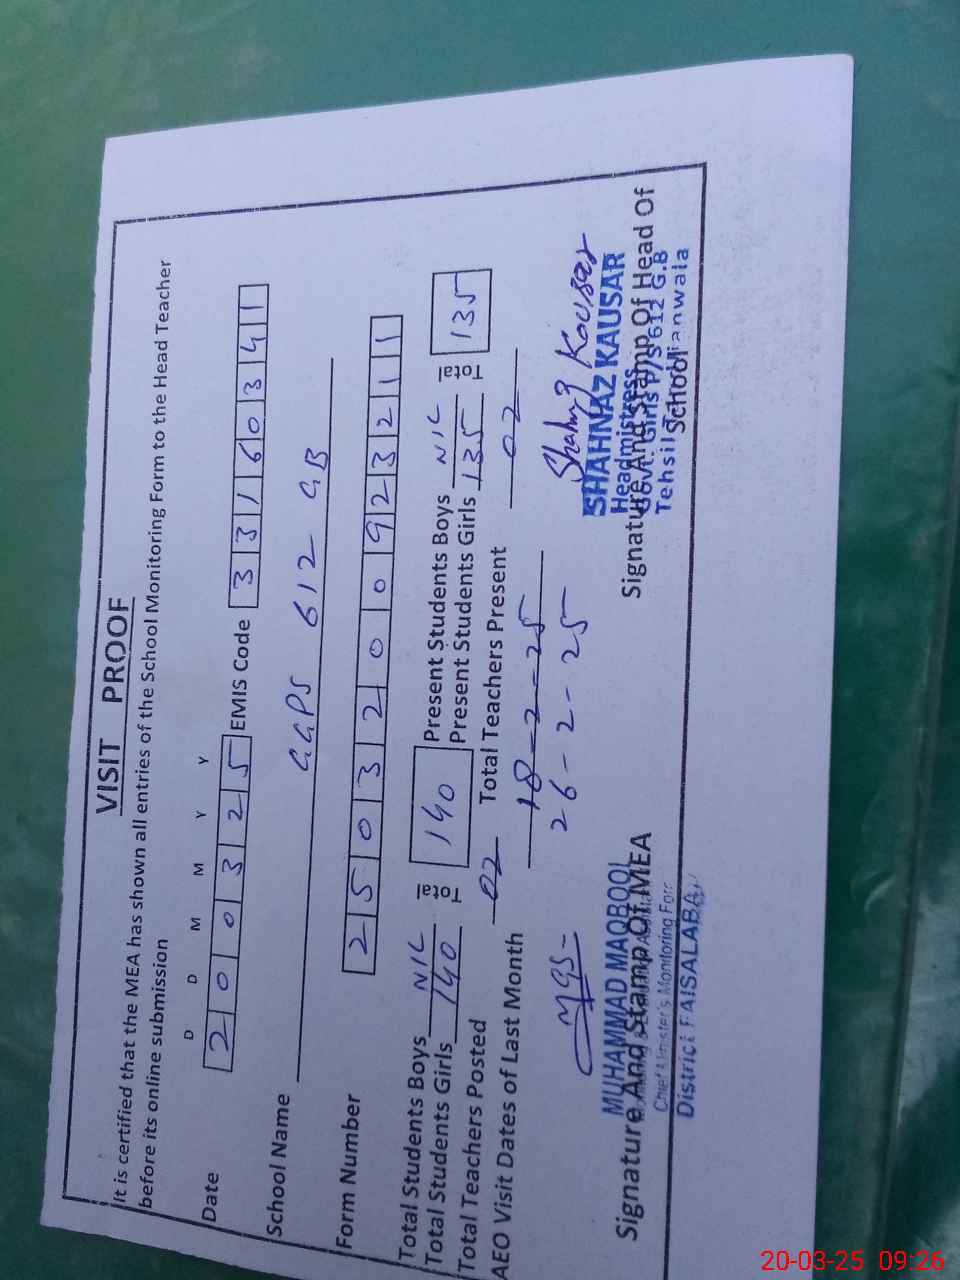 VISIT PROOF
It is certified that the MEA has shown all entries of the School Monitoring Form to the Head Teacher
before its online submission
D D M M Y Y
Date 2 0 0 3 2 5 EMIS Code 3 3 1 6 0 3 4 1
School Name GGPS 612 GB
Form Number 2 5 0 3 2 0 0 9 2 3 2 1 1
Total Students Boys NIL Total 140 Present Students Boys NIL Total 135
Total Students Girls 140 Present Students Girls 135
Total Teachers Posted 02 Total Teachers Present 02
AEO Visit Dates of Last Month 18-2-25
26-2-25
Shahnaz Kousar
MUHAMMAD MAQBOOL SHAHNAZ KAUSAR
Headmistress
Signature And Stamp Of MEA Signature And Stamp Of Head Of
School
Govt. Girls P/S 612 G.B
Chief Minister's Monitoring Force
District FAISALABAD
Tehsil
20-03-25 09:26